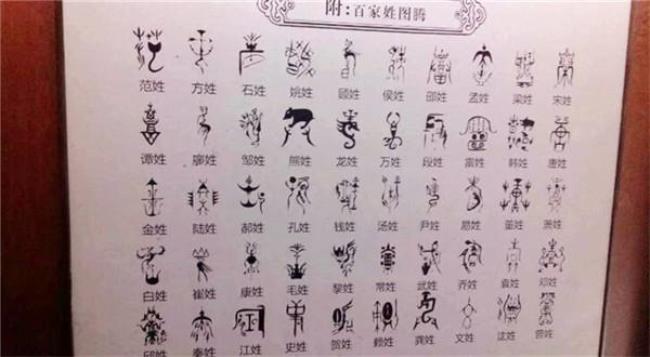 附：百家姓图腾
范姓 方姓 石姓 姚姓 顾姓 侯姓 邵姓 孟姓 梁姓 宋姓
谭姓 廖姓 邹姓 熊姓 龙姓 万姓 段姓 雷姓 韩姓 唐姓
金姓 陆姓 郝姓 孔姓 钱姓 汤姓 尹姓 易姓 董姓 萧姓
白姓 崔姓 康姓 毛姓 黎姓 常姓 武姓 乔姓 袁姓 邓姓
邱姓 秦姓 江姓 史姓 贺姓 赖姓 龚姓 文姓 姓 曾姓